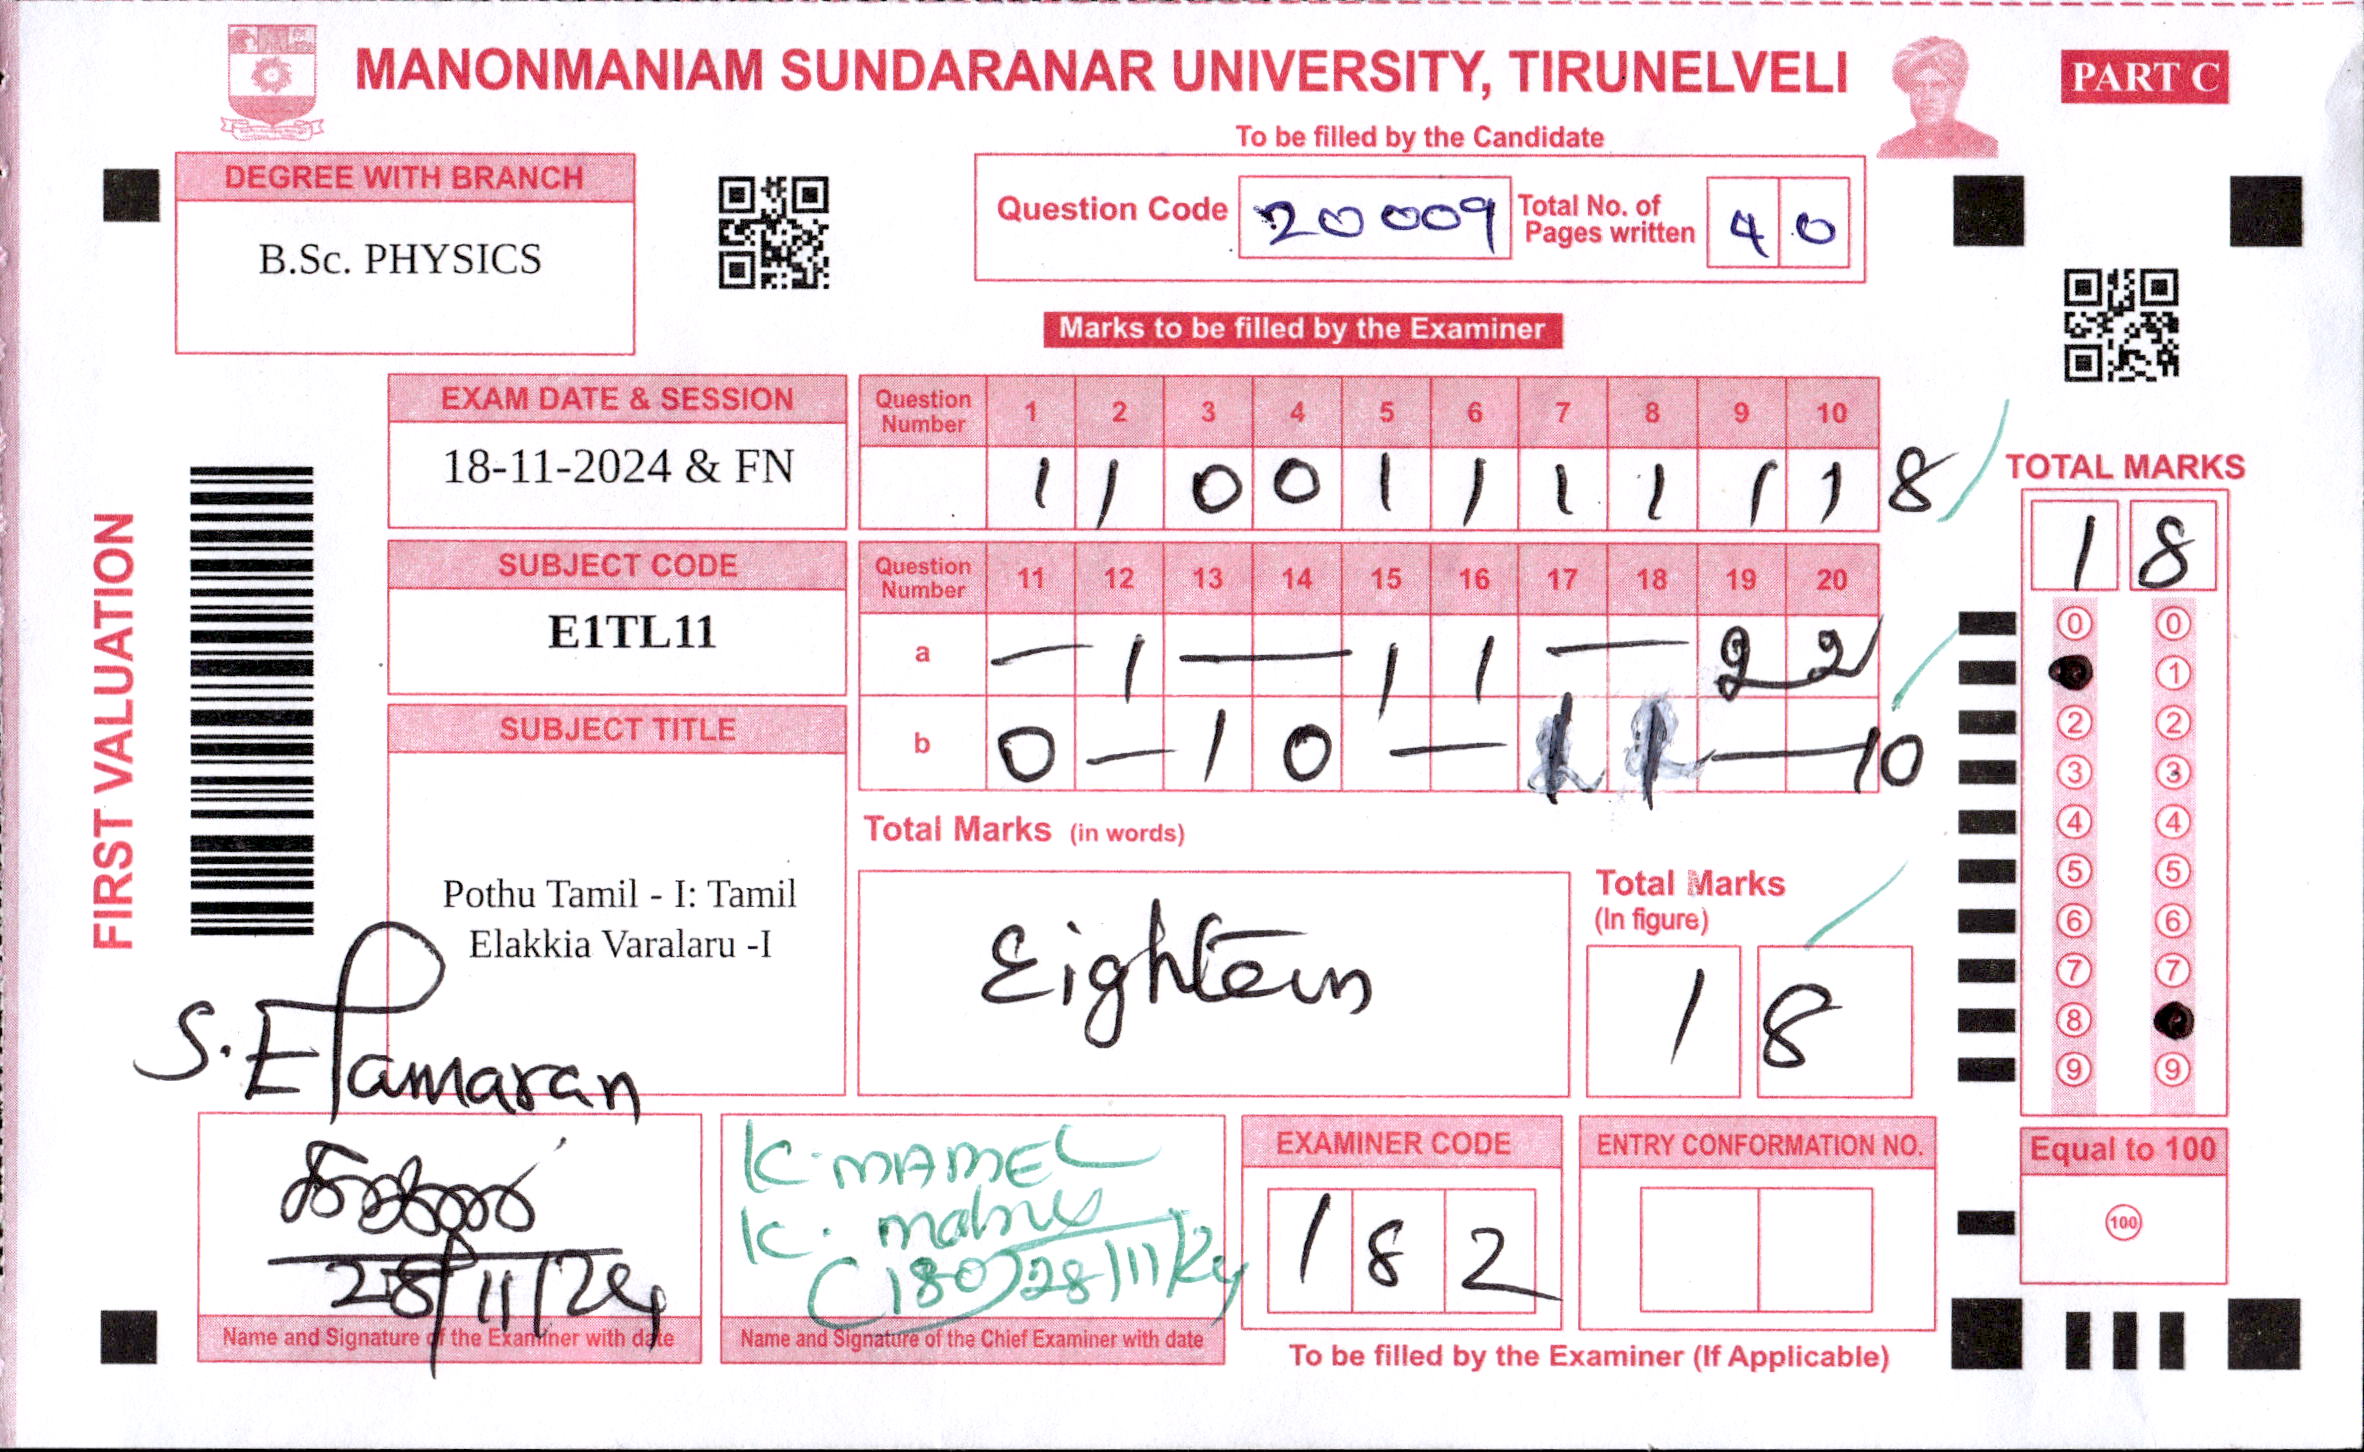 MANONMANIAM SUNDARANAR UNIVERSITY, TIRUNELVELI
PART C
To be filled by the Candidate
DEGREE WITH BRANCH
B.Sc. PHYSICS
Question Code 20009 Total No. of Pages written 40
Marks to be filled by the Examiner
EXAM DATE & SESSION
18-11-2024 & FN
Question Number 1 2 3 4 5 6 7 8 9 10
1 1 0 0 1 1 1 1 1 1 8
SUBJECT CODE
E1TL11
Question Number 11 12 13 14 15 16 17 18 19 20
a — 1 — 1 1 — 2 2
b 0 — 1 0 — 1 1 — 10
SUBJECT TITLE
Pothu Tamil - I: Tamil
Elakkia Varalaru -I
FIRST VALUATION
Total Marks (in words)
Eighteen
Total Marks
(In figure)
18
TOTAL MARKS
18
0 0
1
2 2
3 3
4 4
5 5
6 6
7 7
8
9 9
S. Elamaran
28/11/24
Name and Signature of the Examiner with date
K. MAMEL
K.
(180) 28/11/24
Name and Signature of the Chief Examiner with date
EXAMINER CODE
182
ENTRY CONFORMATION NO.
To be filled by the Examiner (If Applicable)
Equal to 100
100